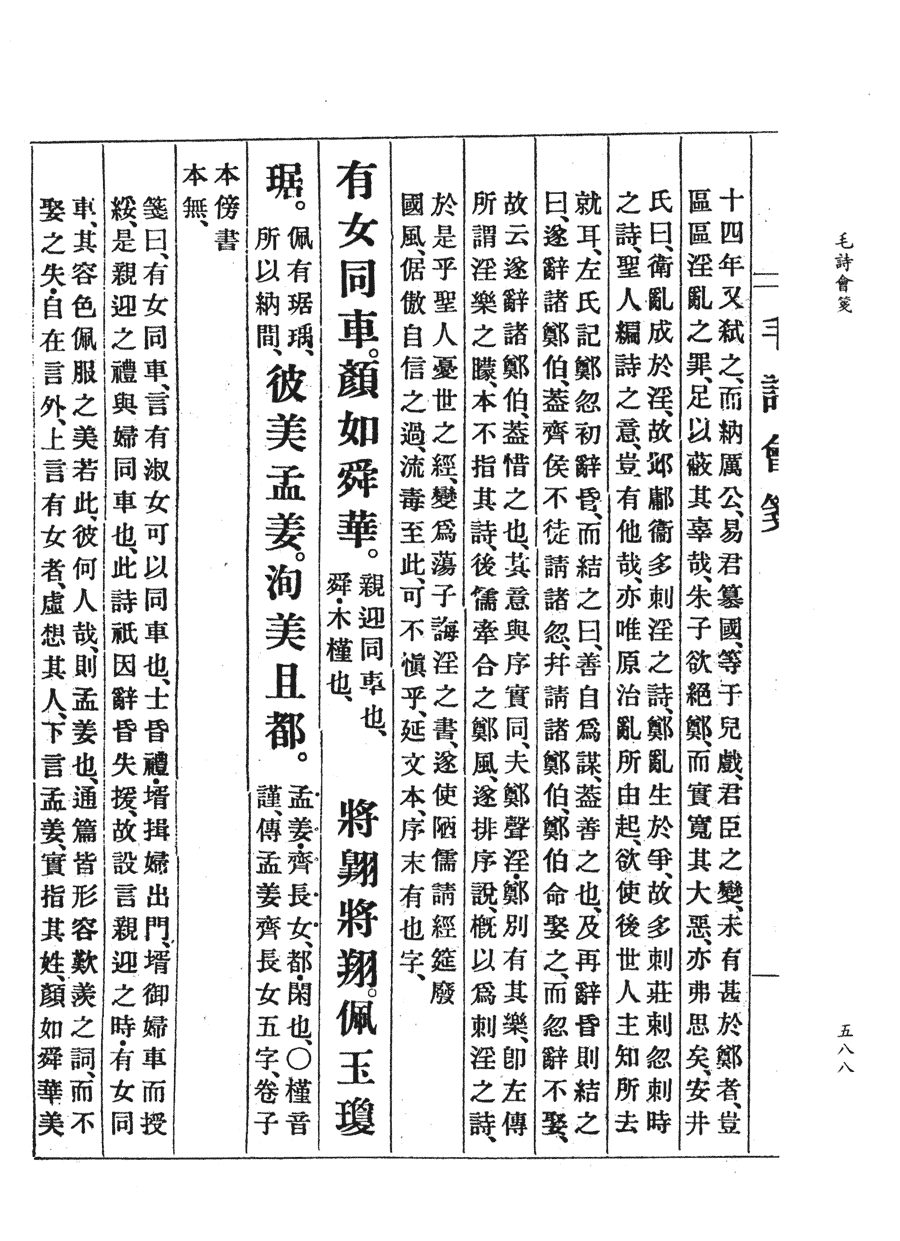 毛詩會箋
五八八
毛詩會箋
十四年又弑之、而納厲公、易君簒國、等于兒戲、君臣之變、未有甚於鄭者、豈
區區淫亂之罪、足以蔽其辜哉、朱子欲絕鄭、而實寬其大惡、亦弗思矣、安井
氏曰、衞亂成於淫、故邶鄘衞多刺淫之詩、鄭亂生於爭、故多刺莊刺忽刺時
之詩、聖人編詩之意、豈有他哉、亦唯原治亂所由起、欲使後世人主知所去
就耳、左氏記鄭忽初辭昏、而結之曰、善自爲謀、葢善之也、及再辭昏則結之
曰、遂辭諸鄭伯、葢齊侯不徒請諸忽、幷請諸鄭伯、鄭伯命娶之、而忽辭不娶、
故云遂辭諸鄭伯、葢惜之也、其意與序實同、夫鄭聲淫、鄭別有其樂、卽左傳
所謂淫樂之矇、本不指其詩、後儒牽合之鄭風、遂排序說、槪以爲刺淫之詩、
於是乎聖人憂世之經、變爲蕩子誨淫之書、遂使陋儒請經筵廢
國風、倨傲自信之過、流毒至此、可不愼乎、延文本、序末有也字、
有女同車。顏如舜華。
親迎同車也、
舜・木槿也、
將翺將翔。佩玉瓊
琚。
佩有琚瑀、
所以納間、
彼美孟姜。洵美且都。
孟姜・齊長女、都・閑也、〇槿音
謹、傳孟姜齊長女五字、卷子
本傍書
本無、
箋曰、有女同車、言有淑女可以同車也、士昏禮・壻揖婦出門、壻御婦車而授
綏、是親迎之禮與婦同車也、此詩祇因辭昏失援、故設言親迎之時・有女同
車、其容色佩服之美若此、彼何人哉、則孟姜也、通篇皆形容歎羨之詞、而不
娶之失・自在言外、上言有女者、虛想其人、下言孟姜、實指其姓、顏如舜華美